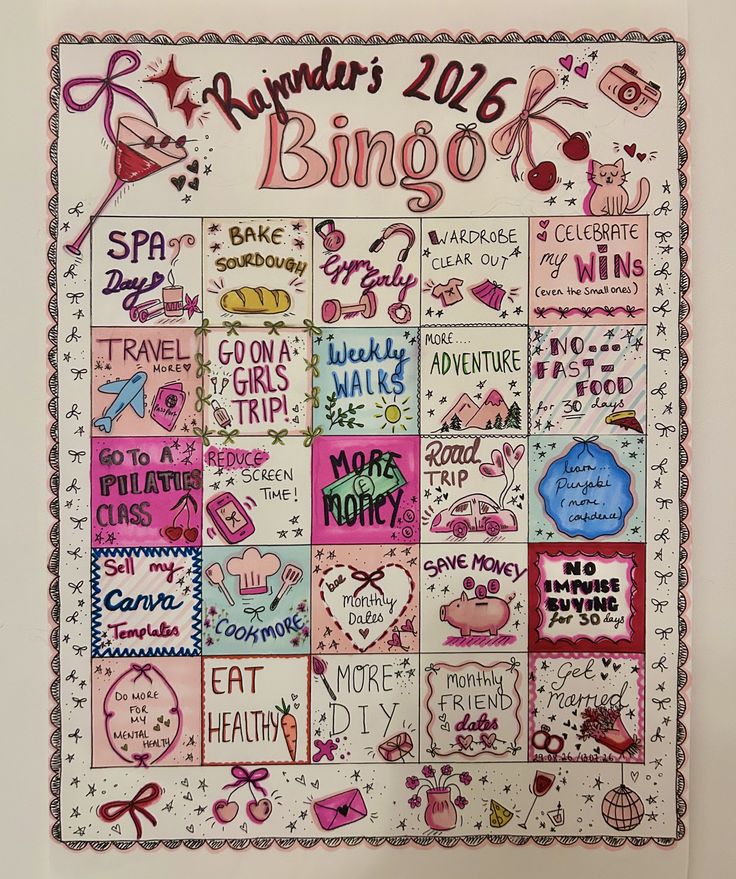 Rajvinder's 2026
Bingo
SPA
Day
BAKE
SOURDOUGH
Gym
Girly
WARDROBE
CLEAR OUT
CELEBRATE
my WiNs
(even the small ones)
TRAVEL
MORE
PASSPORT
GO ON A
GIRLS
TRIP!
Weekly
WALKS
MORE....
ADVENTURE
NO...
FAST
FOOD
for 30 days
GO TO A
PILATES
CLASS
REDUCE
SCREEN
TIME!
MORE
£
MONEY
Road
TRIP
learn...
Punjabi
(more
confidence)
Sell my
Canva
Templates
COOK MORE
bae
Monthly
Dates
SAVE MONEY
£ £
NO
IMPULSE
BUYING
for 30 days
DO MORE
FOR
MY
MENTAL
HEALTH
EAT
HEALTHY
MORE
DIY
monthly
FRIEND
dates
Get
married